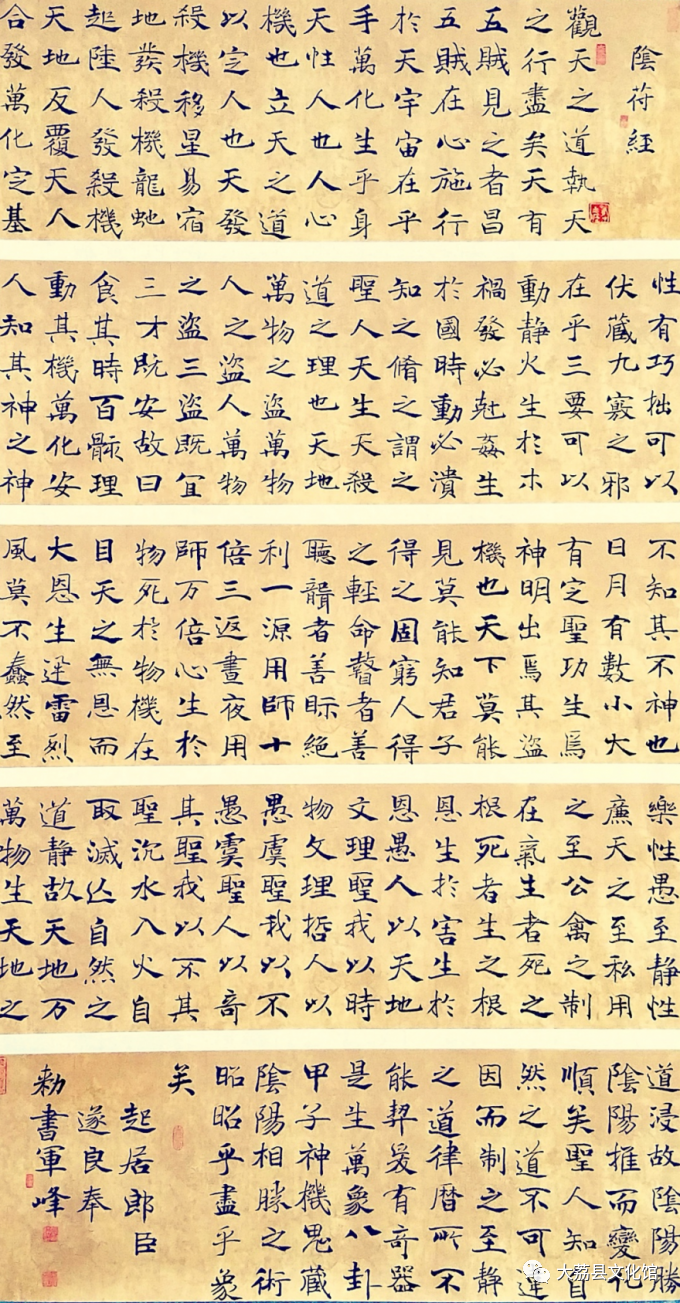 陰符經
觀天之道執天
之行盡矣天有
五賊見之者昌
五賊在心施行
於天宇宙在乎
手萬化生乎身
天性人也人心
機也立天之道
以定人也天發
殺機移星易宿
地發殺機龍虵
起陸人發殺機
天地反覆天人
合發萬化定基
性有巧拙可以
伏藏九竅之邪
在乎三要可以
動靜火生於木
禍發必尅姦生
於國時動必潰
知之脩之謂之
聖人天生天殺
道之理也天地
萬物之盜萬物
人之盜人萬物
之盜三盜既宜
三才既安故曰
食其時百骸理
動其機萬化安
人知其神之神
不知其不神也
日月有數小大
有定聖功生焉
神明出焉其盜
機也天下莫能
見莫能知君子
得之固窮人得
之輕命瞽者善
聽聾者善眎絕
利一源用師十
倍三返晝夜用
師万倍心生於
物死於物機在
目天之無恩而
大恩生迅雷烈
風莫不蠢然至
樂性愚至靜性
廉天之至私用
之至公禽之制
在氣生者死之
根死者生之根
恩生於害生於
恩愚人以天地
文理聖我以時
物文理哲人以
愚虞聖我以不
愚虞聖人以奇
其聖我以不其
聖沉水入火自
取滅亡自然之
道靜故天地万
萬物生天地之
道浸故陰陽勝
陰陽推而變化
順矣聖人知自
然之道不可違
因而制之至靜
之道律曆所不
能契爰有奇器
是生萬象八卦
甲子神機鬼藏
陰陽相勝之術
昭昭乎盡乎象
矣
起居郎臣
遂良奉
勅書軍峰
大荔县文化馆